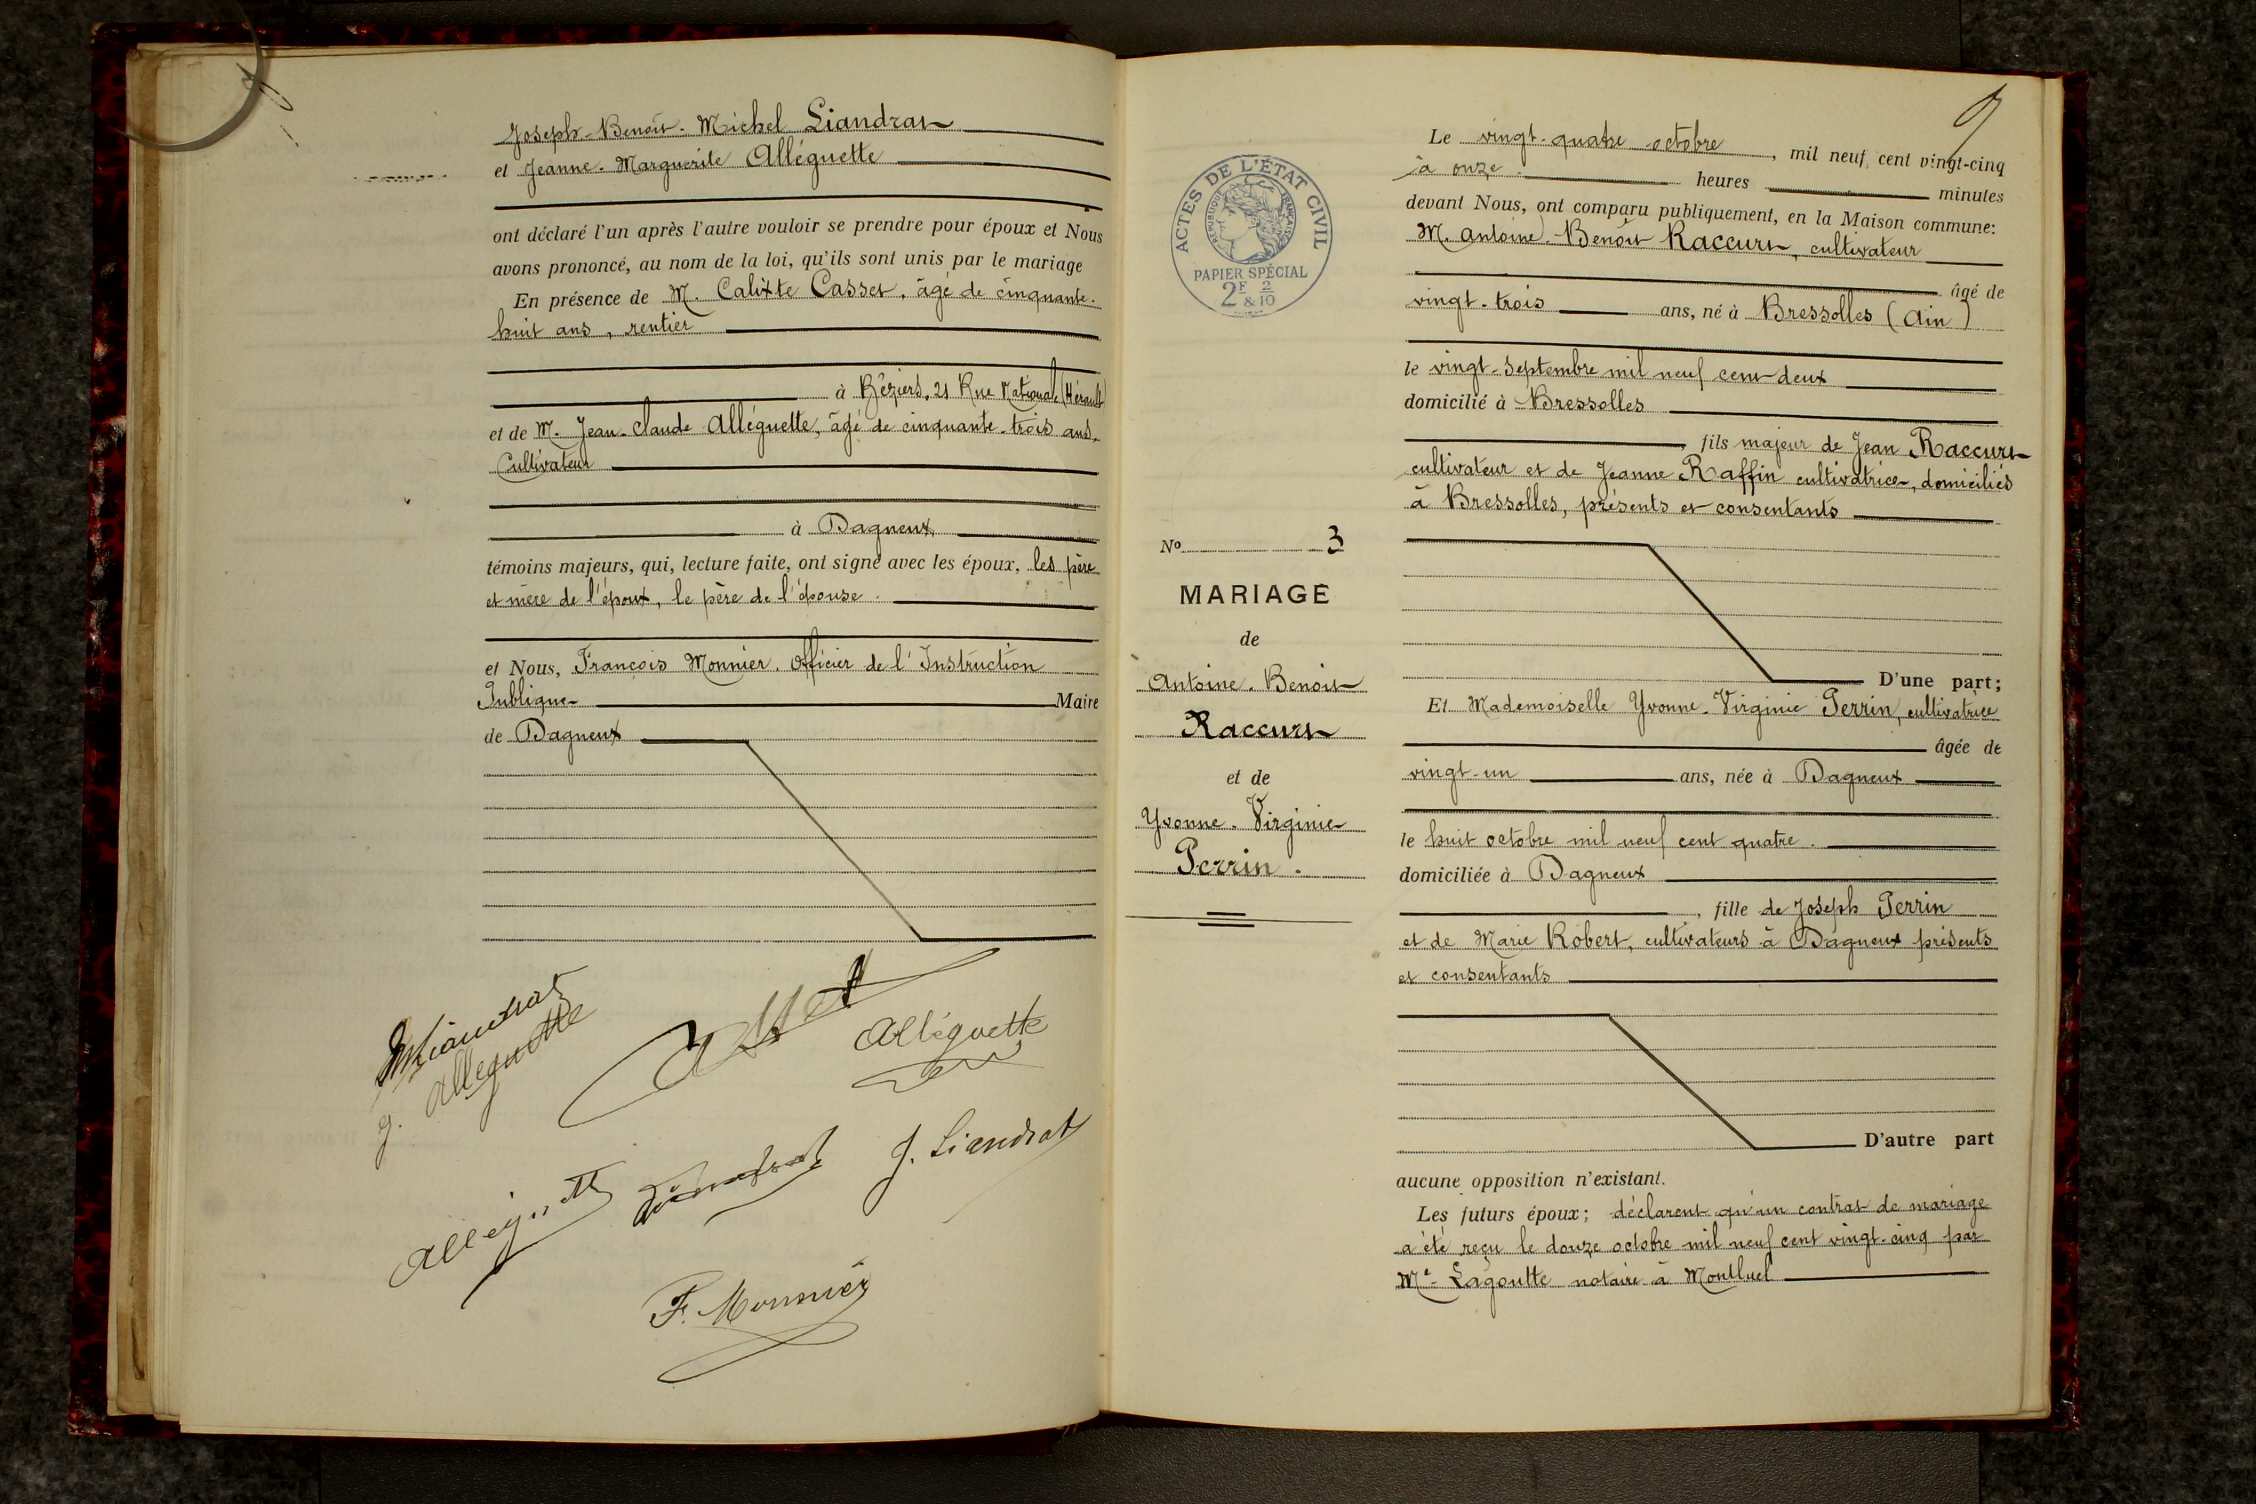 Joseph-Benoit-Michel Liandrat
et Jeanne-Marguerite Alléguette
ont déclaré l'un après l'autre vouloir se prendre pour époux et Nous
avons prononcé, au nom de la loi, qu'ils sont unis par le mariage
En présence de M. Calixte Casset, âgé de cinquante-
huit ans, rentier
à Béziers, 21 Rue Nationale (Hérault)
et de M. Jean-Claude Alléguette, âgé de cinquante-trois ans,
Cultivateur
à Dagneux
témoins majeurs, qui, lecture faite, ont signé avec les époux, les père
et mère de l'époux, le père de l'épouse.
et Nous, François Monnier, Officier de l'Instruction
Publique Maire
de Dagneux
Liandrat
J. Alléguette
Alléguette
Alléguette
Liandrat
J. Liandrat
F. Monnier
ACTES DE L'ÉTAT CIVIL
RÉPUBLIQUE FRANÇAISE
PAPIER SPÉCIAL
2F & 2/10
No 3
MARIAGE
de
Antoine-Benoit
Raccurt
et de
Yvonne-Virginie
Perrin.
9
Le vingt-quatre octobre, mil neuf cent vingt-cinq
à onze heures minutes
devant Nous, ont comparu publiquement, en la Maison commune:
M. Antoine-Benoît Raccurt, cultivateur
âgé de
vingt-trois ans, né à Bressolles (Ain)
le vingt-septembre mil neuf cent deux
domicilié à Bressolles
fils majeur de Jean Raccurt
cultivateur et de Jeanne Raffin cultivatrice, domiciliés
à Bressolles, présents et consentants
D'une part;
Et Mademoiselle Yvonne-Virginie Perrin, cultivatrice
âgée de
vingt-un ans, née à Dagneux
le huit octobre mil neuf cent quatre.
domiciliée à Dagneux
, fille de Joseph Perrin
et de Marie Robert, cultivateurs à Dagneux présents
et consentants
D'autre part
aucune opposition n'existant.
Les futurs époux; déclarent qu'un contrat de mariage
a été reçu le douze octobre mil neuf cent vingt-cinq par
Me Lagoutte notaire à Montluel